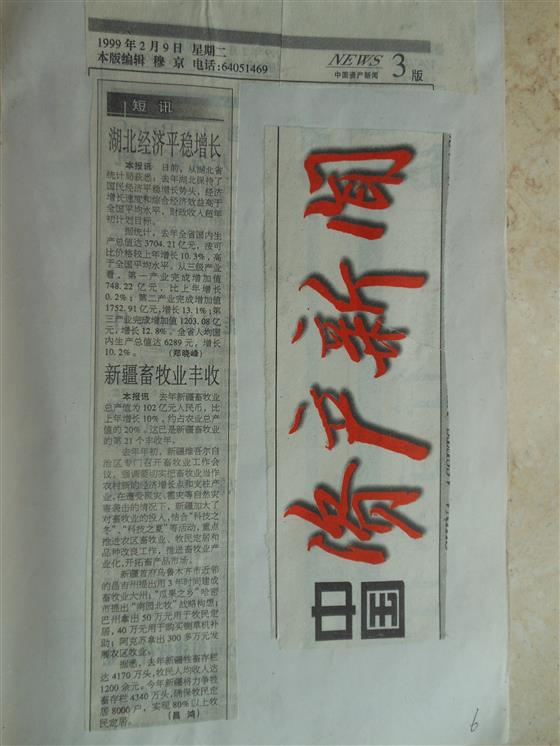 1999年2月9日 星期二
本版编辑 穆 京 电话:64051469
NEWS
中国资产新闻
3版
短 讯
湖北经济平稳增长
本报讯 日前，从湖北省
统计局获悉：去年湖北保持了
国民经济平稳增长势头，经济
增长速度和综合经济效益高于
全国平均水平，财政收入超年
初计划目标。
据统计，去年全省国内生
产总值达3704.21亿元，按可
比价格较上年增长10.3%，高
于全国平均水平。从三级产业
看，第一产业完成增加值
748.22亿元，比上年增长
0.2%；第二产业完成增加值
1752.91亿元，增长13.1%；第
三产业完成增加值1203.08亿
元，增长12.8%。全省人均国
内生产总值达6289元，增长
10.2%。 (郑晓峰)
新疆畜牧业丰收
本报讯 去年新疆畜牧业
总产值为102亿元人民币，比
上年增长10%，约占农业总产
值的20%。这已是新疆畜牧业
的第21个丰收年。
去年年初，新疆维吾尔自
治区专门召开畜牧业工作会
议，强调要切实把畜牧业当作
农村新的经济增长点和支柱产
业，在遭受风灾、雹灾等自然灾
害袭击的情况下，新疆加大了
对畜牧业的投入，结合“科技之
冬”、“科技之夏”等活动，重点
推进农区畜牧业、牧民定居和
品种改良工作，推进畜牧业产
业化，开拓畜产品市场。
新疆首府乌鲁木齐市近邻
的昌吉州提出用3年时间建成
畜牧业大州；“瓜果之乡”哈密
市提出“南园北牧”战略构想；
巴州拿出50万元用于牧民定
居，40万元用于购买铡草机补
助；阿克苏拿出300多万元发
展农区牧业。
据悉，去年新疆牲畜存栏
达4170万头，牧民人均收入达
1200余元。今年新疆将力争牲
畜存栏4340万头，确保牧民定
居8000户，实现80%以上牧
民定居。 (昌 鸿)
中国
资产新闻